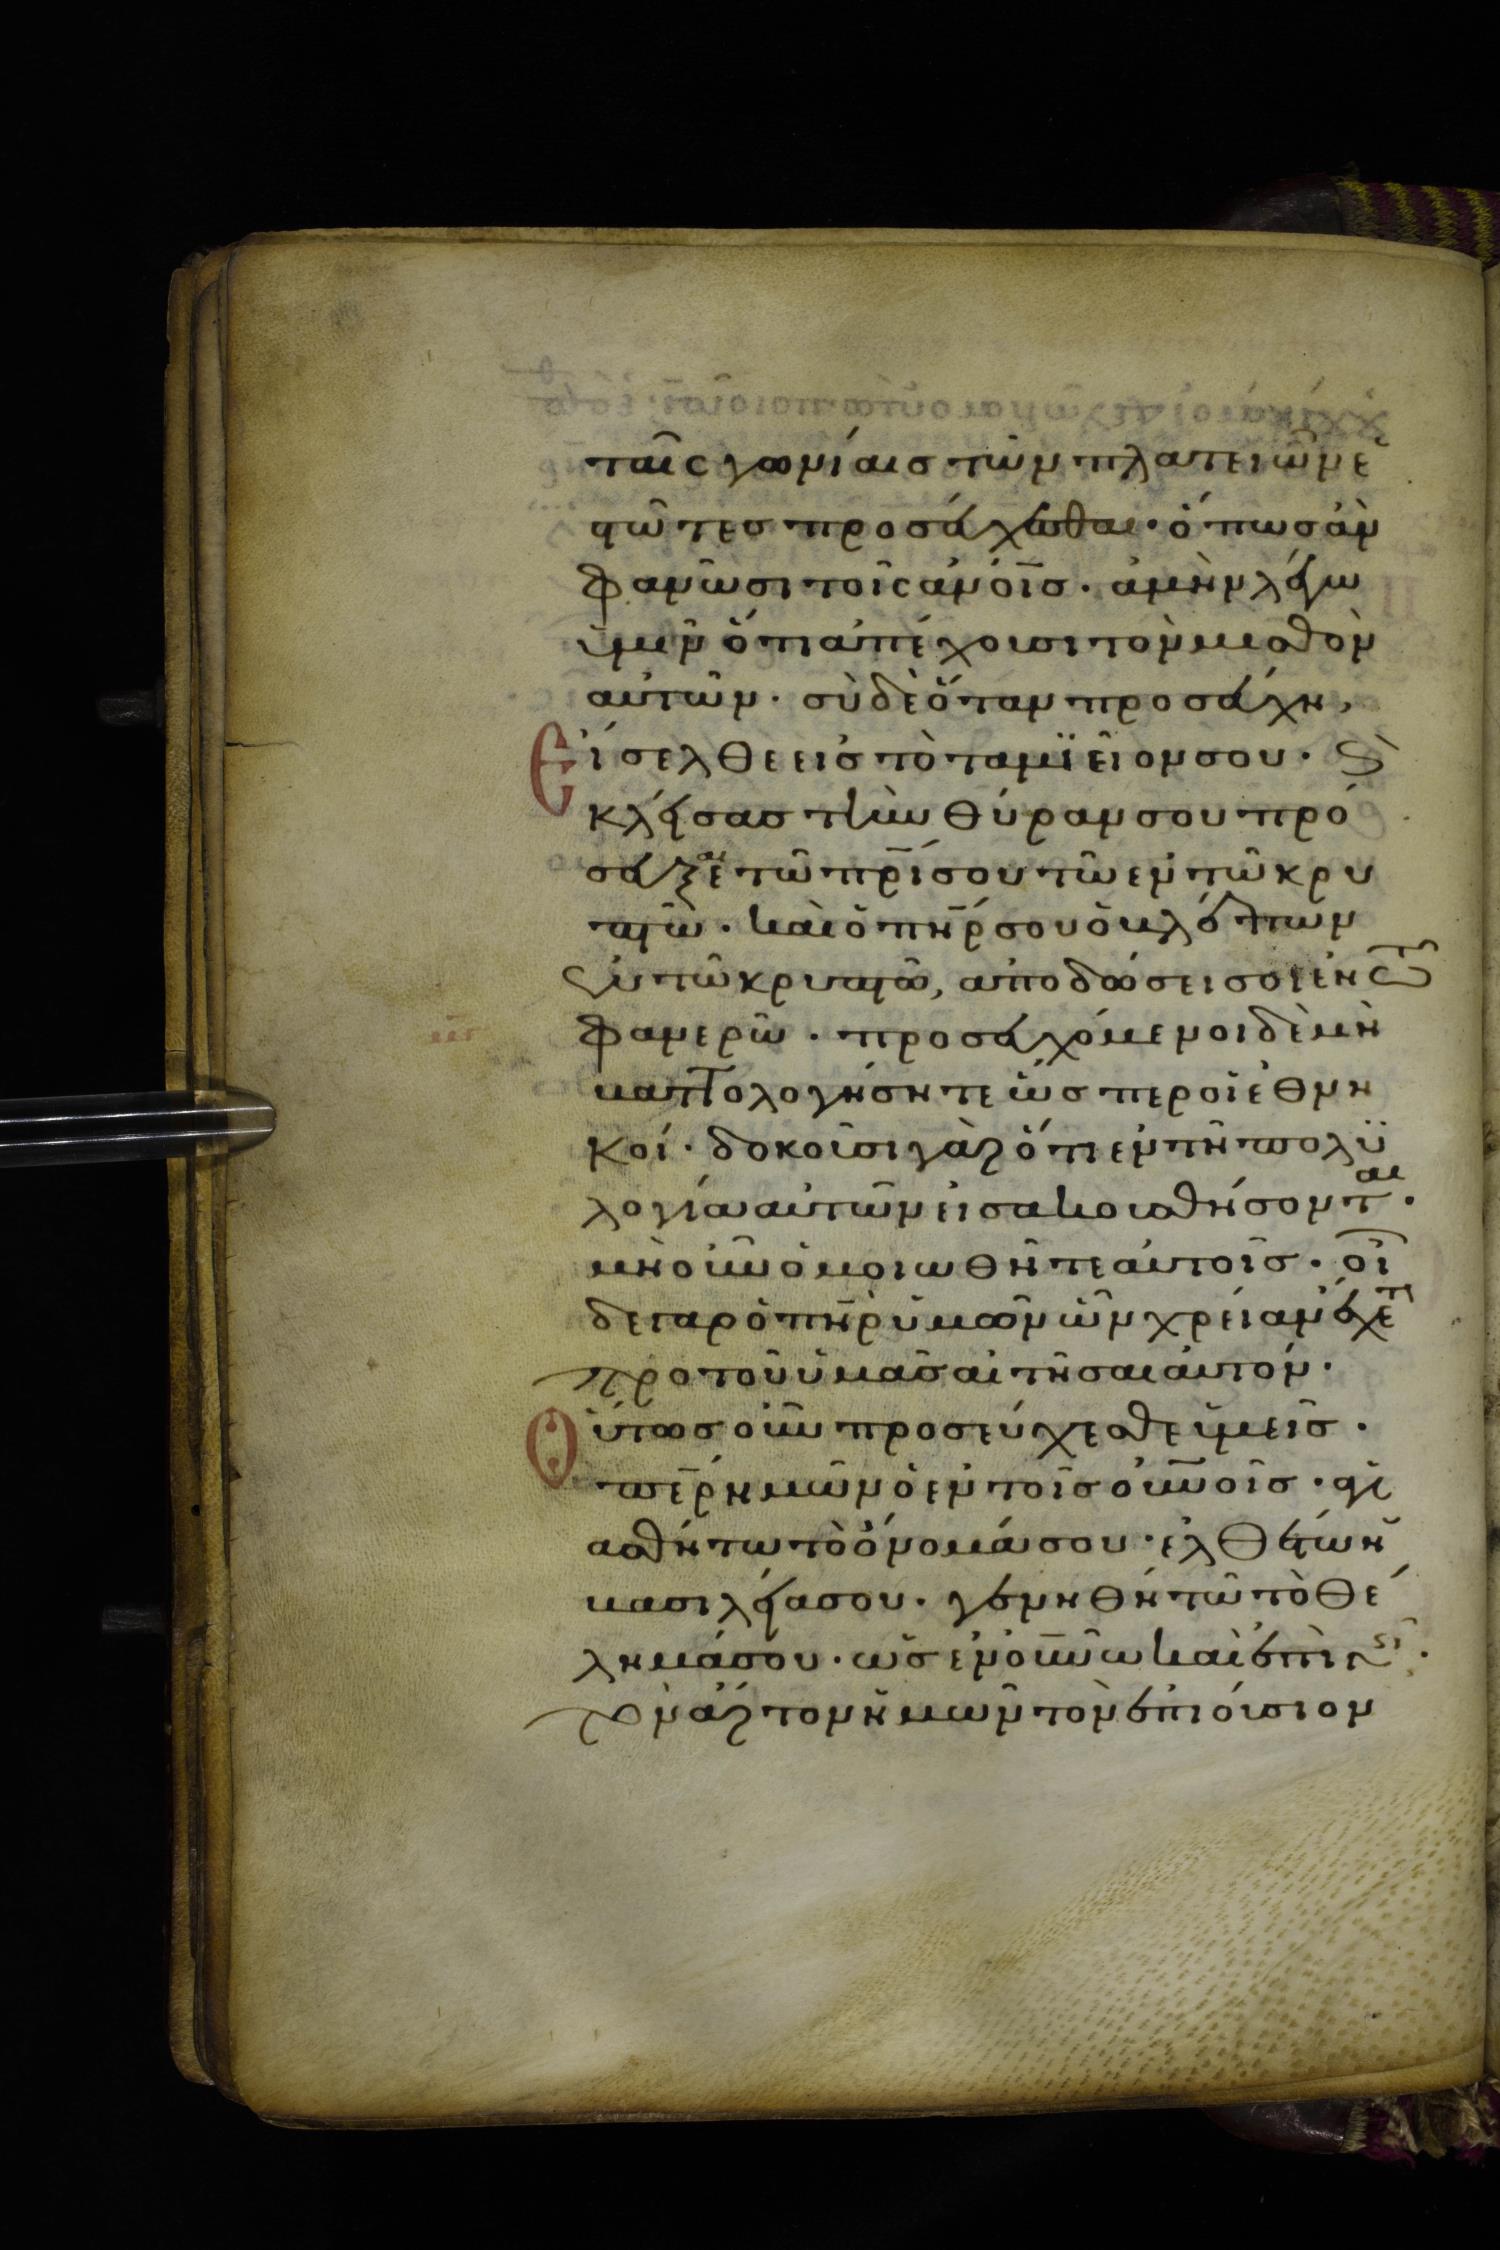 ταῖς γωνίαις τῶν πλατειῶν ἑ
στῶτες προσεύχεσθαι· ὅπως ἂν
φανῶσι τοῖς ἀνοῖς. ἀμὴν λέγω
ὑμῖν ὅτι ἀπέχουσι τὸν μισθὸν
αὐτῶν. σὺ δὲ ὅταν προσεύχη,
Εἴσελθε εἰς τὸ ταμϊεῖον σου. ϗ
κλείσας τὴν θύραν σου πρό
σευξαι τῶ πρί σου τῶ ἐν τῶ κρυ
πτῶ. καὶ ὁ πηρ σου ὁ βλέπων
ἐν τῶ κρυπτῶ, ἀποδώσει σοι ἐν τῶ
φανερῶ. προσευχόμενοι δὲ μὴ
βαττολογήσητε ὥσπερ οἱ ἐθνη
κοί. δοκοῦσι γὰρ ὅτι ἐν τῆ πολϋ
λογία αὐτῶν εἰσακουσθήσονται.
μὴ οὖν ὁμοιωθῆτε αὐτοῖς. οἶ
δε γαρ ὁ πηρ ὑμῶν ὧν χρείαν ἔχετε
προ τοῦ ὑμᾶς αἰτῆσαι αὐτόν.
Οὕτως οὖν προσεύχεσθε ὑμεῖς.
περ ἡμῶν ὁ ἐν τοῖς οὐνοῖς. ἁγι
ασθήτω τὸ ὄνομά σου. ἐλθέτω ἡ
βασιλεία σου. γενηθήτω τὸ θέ
λημά σου. ὡς ἐν οὐνῶ καὶ ἐπὶ γῆς.
τὸν ἄρτον ἡμῶν τὸν ἐπιούσιον